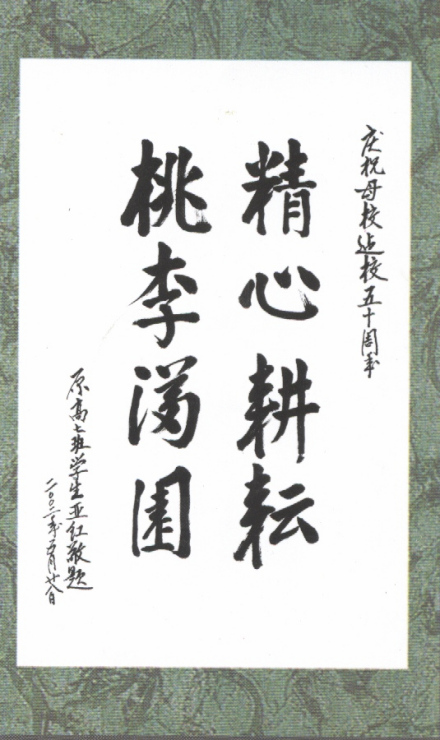 庆祝母校建校五十周年
精心耕耘
桃李满园
原高七班学生亚红敬题
二〇〇二年五月廿八日